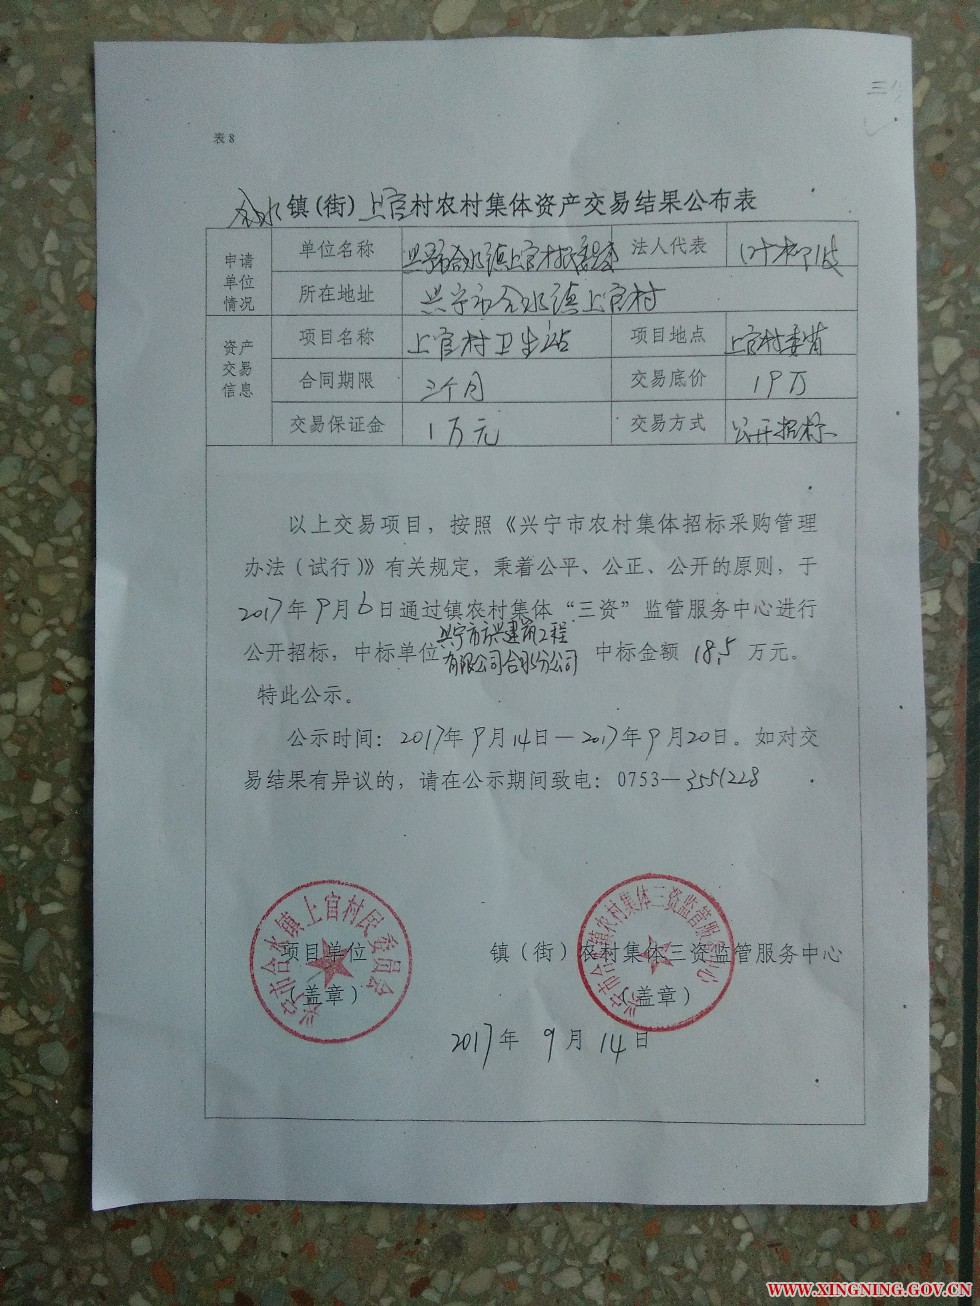 表8
合水镇(街)上官村农村集体资产交易结果公布表
申请单位情况 单位名称 兴宁市合水镇上官村民委员会 法人代表
所在地址 兴宁市合水镇上官村
资产交易信息 项目名称 上官村卫生站 项目地点 上官村委背
合同期限 三个月 交易底价 19万
交易保证金 1万元 交易方式 公开招标
以上交易项目，按照《兴宁市农村集体招标采购管理
办法（试行）》有关规定，秉着公平、公正、公开的原则，于
2017年9月6日通过镇农村集体“三资”监管服务中心进行
公开招标，中标单位兴宁市兴建筑工程有限公司合水分公司 中标金额 18.5 万元。
特此公示。
公示时间：2017年9月14日—2017年9月20日。如对交
易结果有异议的，请在公示期间致电：0753—3551228
兴宁市合水镇上官村民委员会
兴宁市合水镇农村集体三资监管服务中心
项目单位 镇（街）农村集体三资监管服务中心
（盖章） （盖章）
2017年9月14日
WWW.XINGNING.GOV.CN